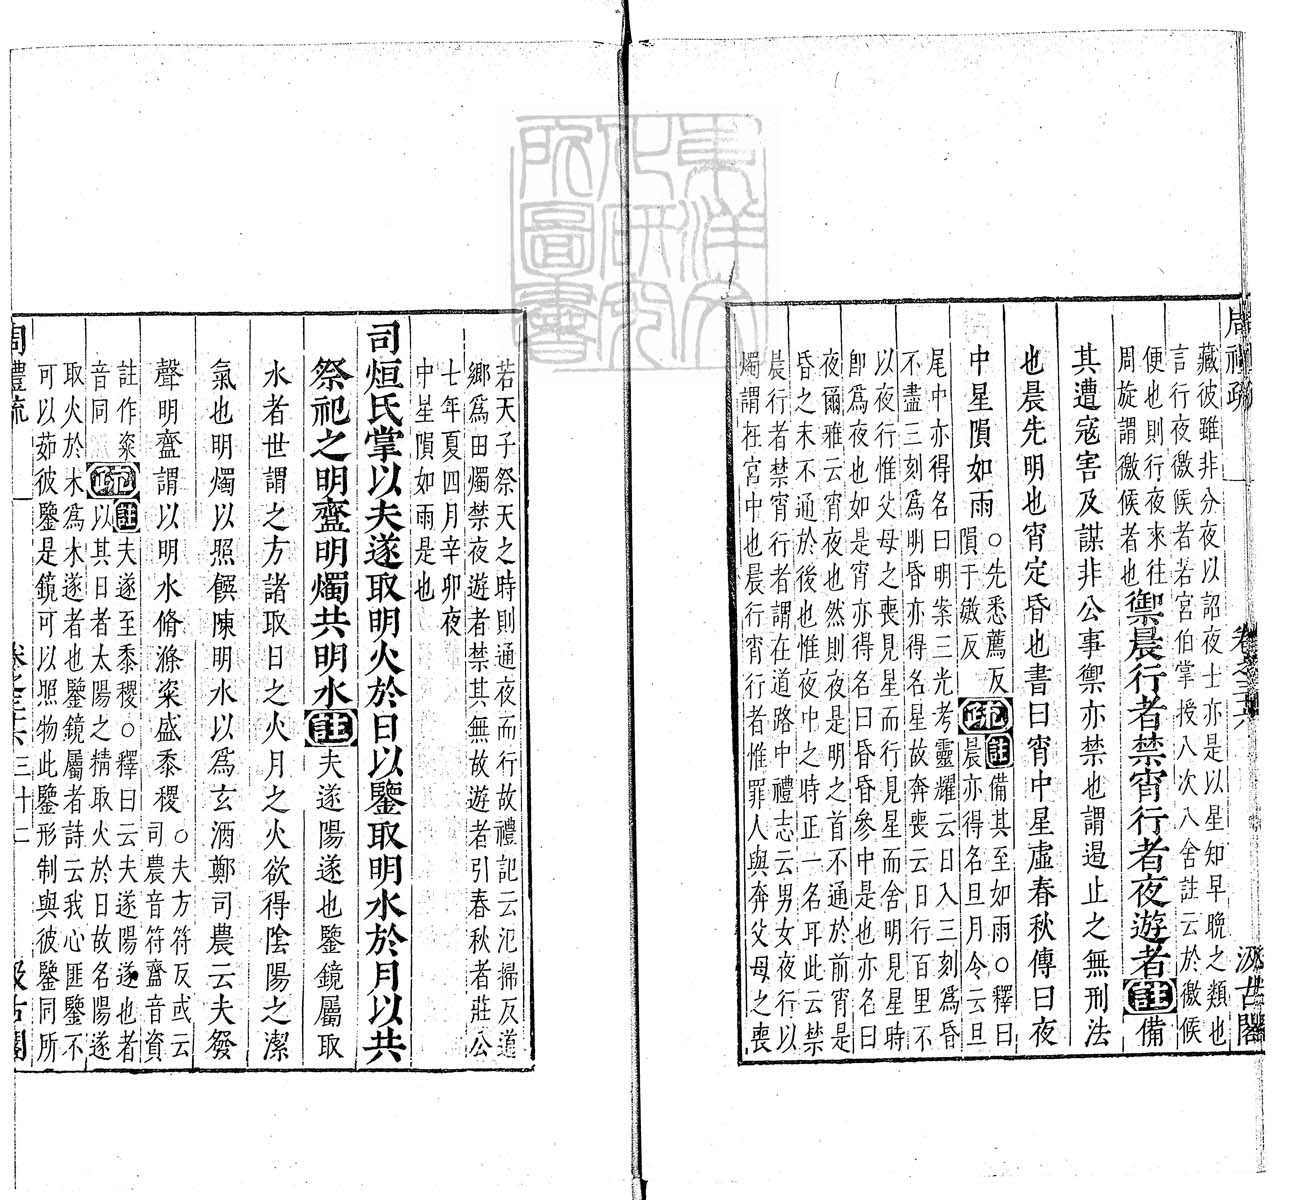 周禮疏
卷之三十六
汲古閣
藏彼雖非分夜以詔夜士亦是以星知早晚之類也
言行夜徼候者若宮伯掌授八次八舍註云於徼候
便也則行夜來往
周旋謂徼候者也
禦晨行者禁宵行者夜遊者註備
其遭寇害及謀非公事禦亦禁也謂遏止之無刑法
也晨先明也宵定昏也書曰宵中星虛春秋傳曰夜
中星隕如雨
○先悉薦反
隕于敏反
疏註備其至如雨○釋曰
晨亦得名旦月令云旦
尾中亦得名曰明案三光考靈耀云日入三刻爲昏
不盡三刻爲明昏亦得名星故奔喪云日行百里不
以夜行惟父母之喪見星而行見星而舍明見星時
卽爲夜也如是宵亦得名曰昏昏參中是也亦名曰
夜爾雅云宵夜也然則夜是明之首不通於前宵是
昏之末不通於後也惟夜中之時正一名耳此云禁
晨行者禁宵行者謂在道路中禮志云男女夜行以
燭謂在宮中也晨行宵行者惟罪人與奔父母之喪
若天子祭天之時則通夜而行故禮記云汜掃反道
鄉爲田燭禁夜遊者禁其無故遊者引春秋者莊公
七年夏四月辛卯夜
中星隕如雨是也
司烜氏掌以夫遂取明火於日以鑒取明水於月以共
祭祀之明齍明燭共明水註夫遂陽遂也鑒鏡屬取
水者世謂之方諸取日之火月之水欲得陰陽之潔
氣也明燭以照饌陳明水以爲玄酒鄭司農云夫發
聲明齍謂以明水滫滌粢盛黍稷
○夫方符反或云
司農音符齍音資
註作粢
音同
疏註夫遂至黍稷○釋曰云夫遂陽遂也者
以其日者太陽之精取火於日故名陽遂
取火於木爲木遂者也鑒鏡屬者詩云我心匪鑒不
可以茹彼鑒是鏡可以照物此鑒形制與彼鑒同所
周禮疏
卷之三十六
三十二
汲古閣
東洋文化研究所圖書